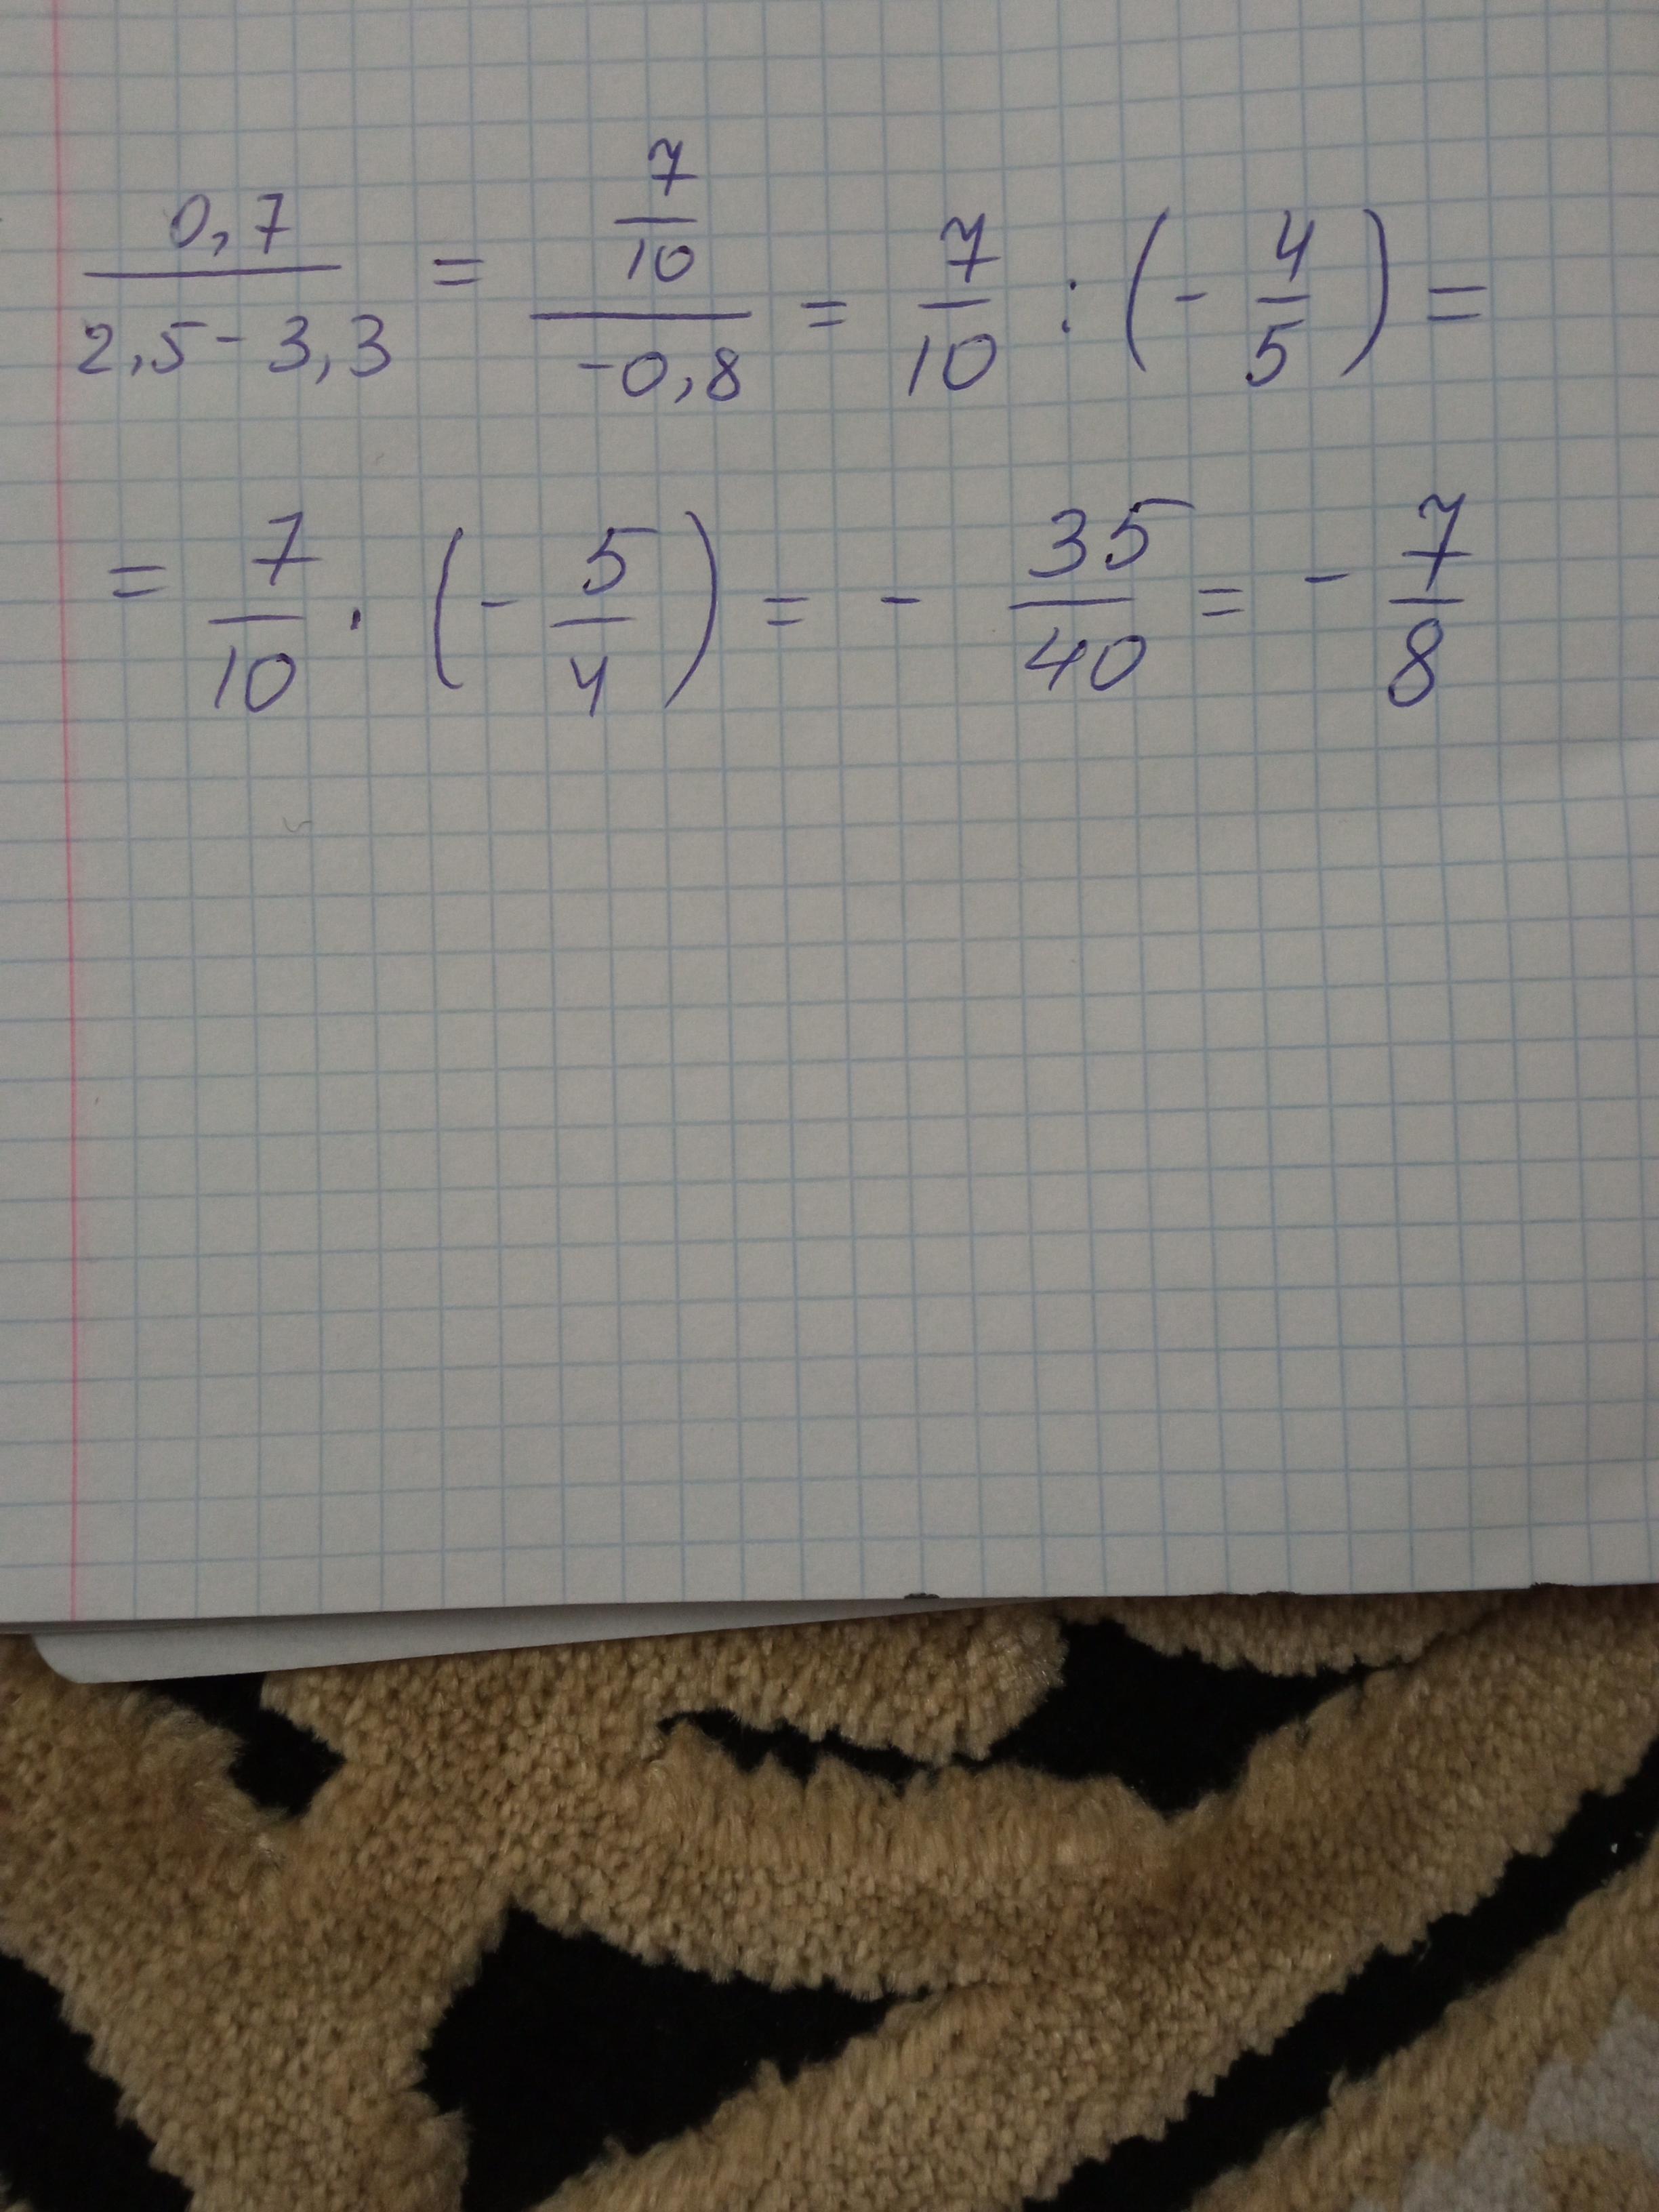 0,7/(2,5-3,3) = (7/10)/(-0,8) = 7/10 : (-4/5) =
= 7/10 · (-5/4) = - 35/40 = - 7/8